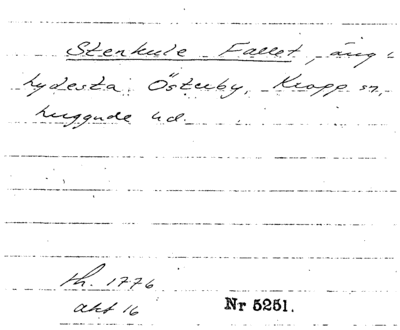 Stenkule Fallet, äng i
Lydesta Österby, Knapp sn,
huggude hd.
th. 1776
akt 16 Nr 5251.